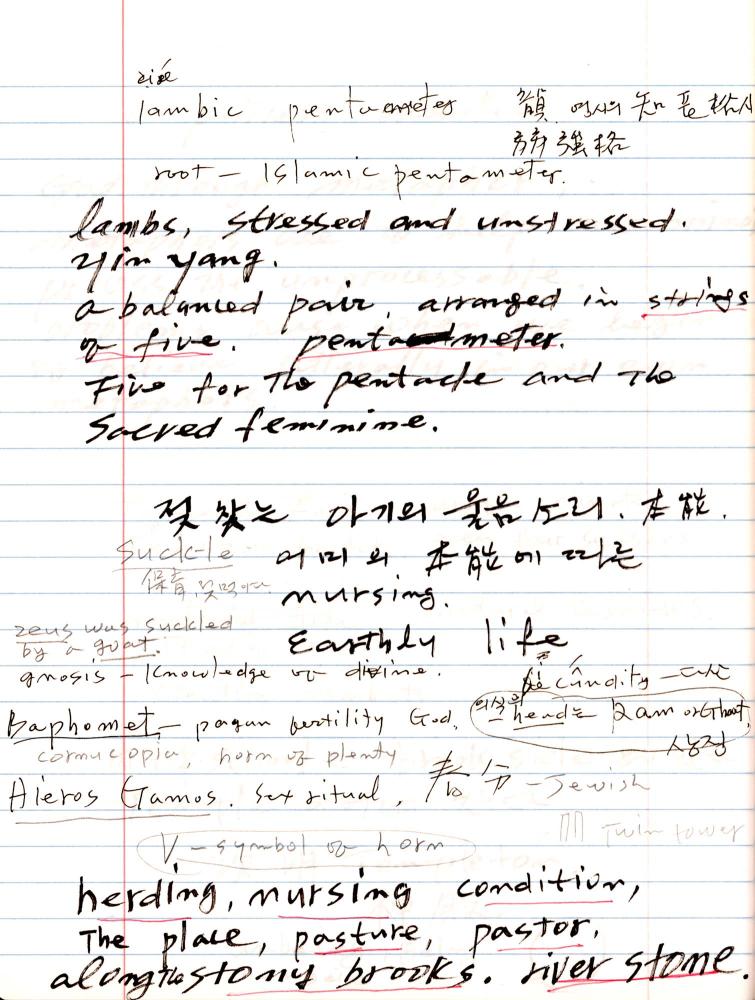 Iambic pentameter
root - Islamic pentameter.
Iambs, stressed and unstressed.
Yin yang.
a balanced pair, arranged in strings
of five. pentameter.
Five for The pentacle and The
Sacred feminine.
젖 찾는 아기의 울음소리. 本能.
Suckle 어미의 本能에 따른
保育, 젖먹이다
nursing.
zeus was suckled
by a goat. Earthly life
gnosis - Knowledge of divine.
fecundity - 다산
Baphomet - pagan fertility God, 의식용 head는 Ram or Ghoat,
cornucopia, horn of plenty 상징
Hieros Gamos. Sex ritual, 春分 - Jewish
V - symbol of horn Twin tower
herding, nursing condition,
The place, pasture, pastor,
along the stony brooks. river stone.